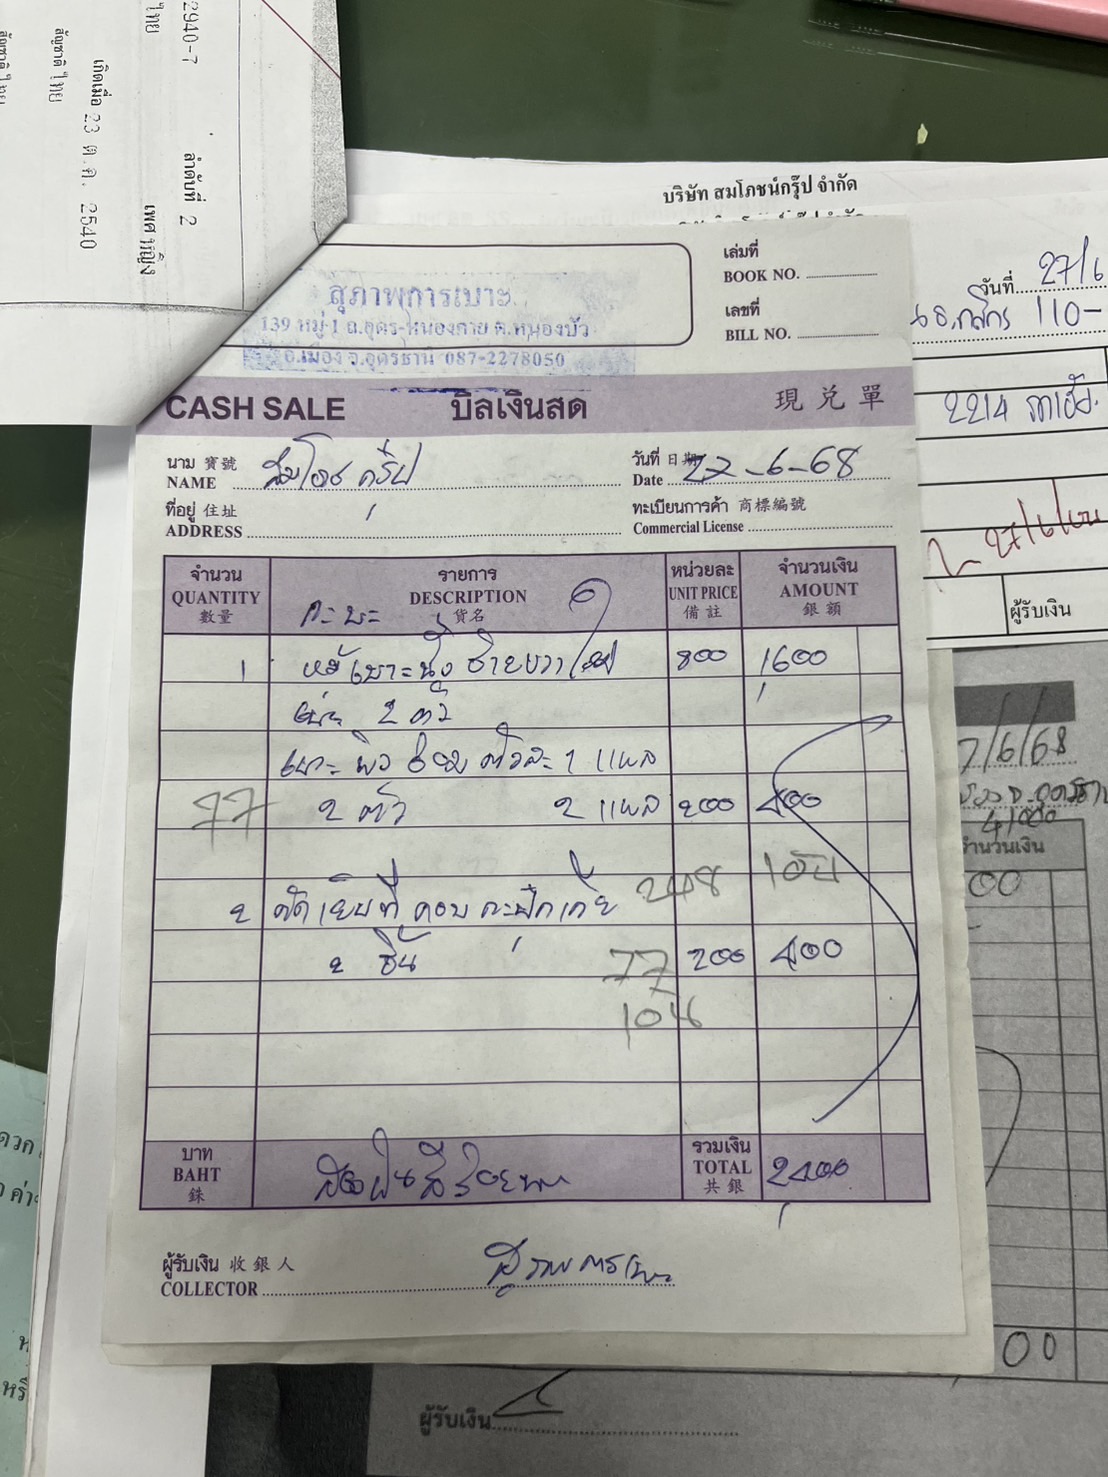 2940-7
ไทย
ลำดับที่ 2
เพศ หญิง
เกิดเมื่อ 23 ต.ค. 2540
สัญชาติ ไทย
สัญชาติ ไทย
บริษัท สมโภชน์กรุ๊ป จำกัด
วันที่ 27/6
110-
2214
27/6
ผู้รับเงิน
เล่มที่
BOOK NO.
เลขที่
BILL NO.
สุภาพการเบาะ
139 หมู่-1 ถ.อุดร-หนองคาย ต.หนองบัว
อ.เมือง จ.อุดรธานี 087-2278050
CASH SALE บิลเงินสด 現兌單
นาม 寶號
NAME สมโภช กรุ๊ป
วันที่ 日期
Date 27-6-68
ที่อยู่ 住址
ADDRESS
ทะเบียนการค้า 商標編號
Commercial License
จำนวน QUANTITY 數量
รายการ DESCRIPTION 貨名
หน่วยละ UNIT PRICE 備註
จำนวนเงิน AMOUNT 銀額
กะบะ
1 หุ้มเบาะนั่ง ซ้ายขวา 800 1600
2 ตัว
เบาะ พิง ซ่อม ตัวละ 1 แผล
77 2 ตัว 2 แผล 200 400
248
2 ตัดเย็บที่ครอบกะปุกเกียร์
2 ชิ้น 200 400
77
บาท BAHT 銖
สองพันสี่ร้อยบาท
รวมเงิน TOTAL 共銀 2400
ผู้รับเงิน 收銀人
COLLECTOR สุภาพการเบาะ
7/6/68
จำนวนเงิน
00
00
ผู้รับเงิน